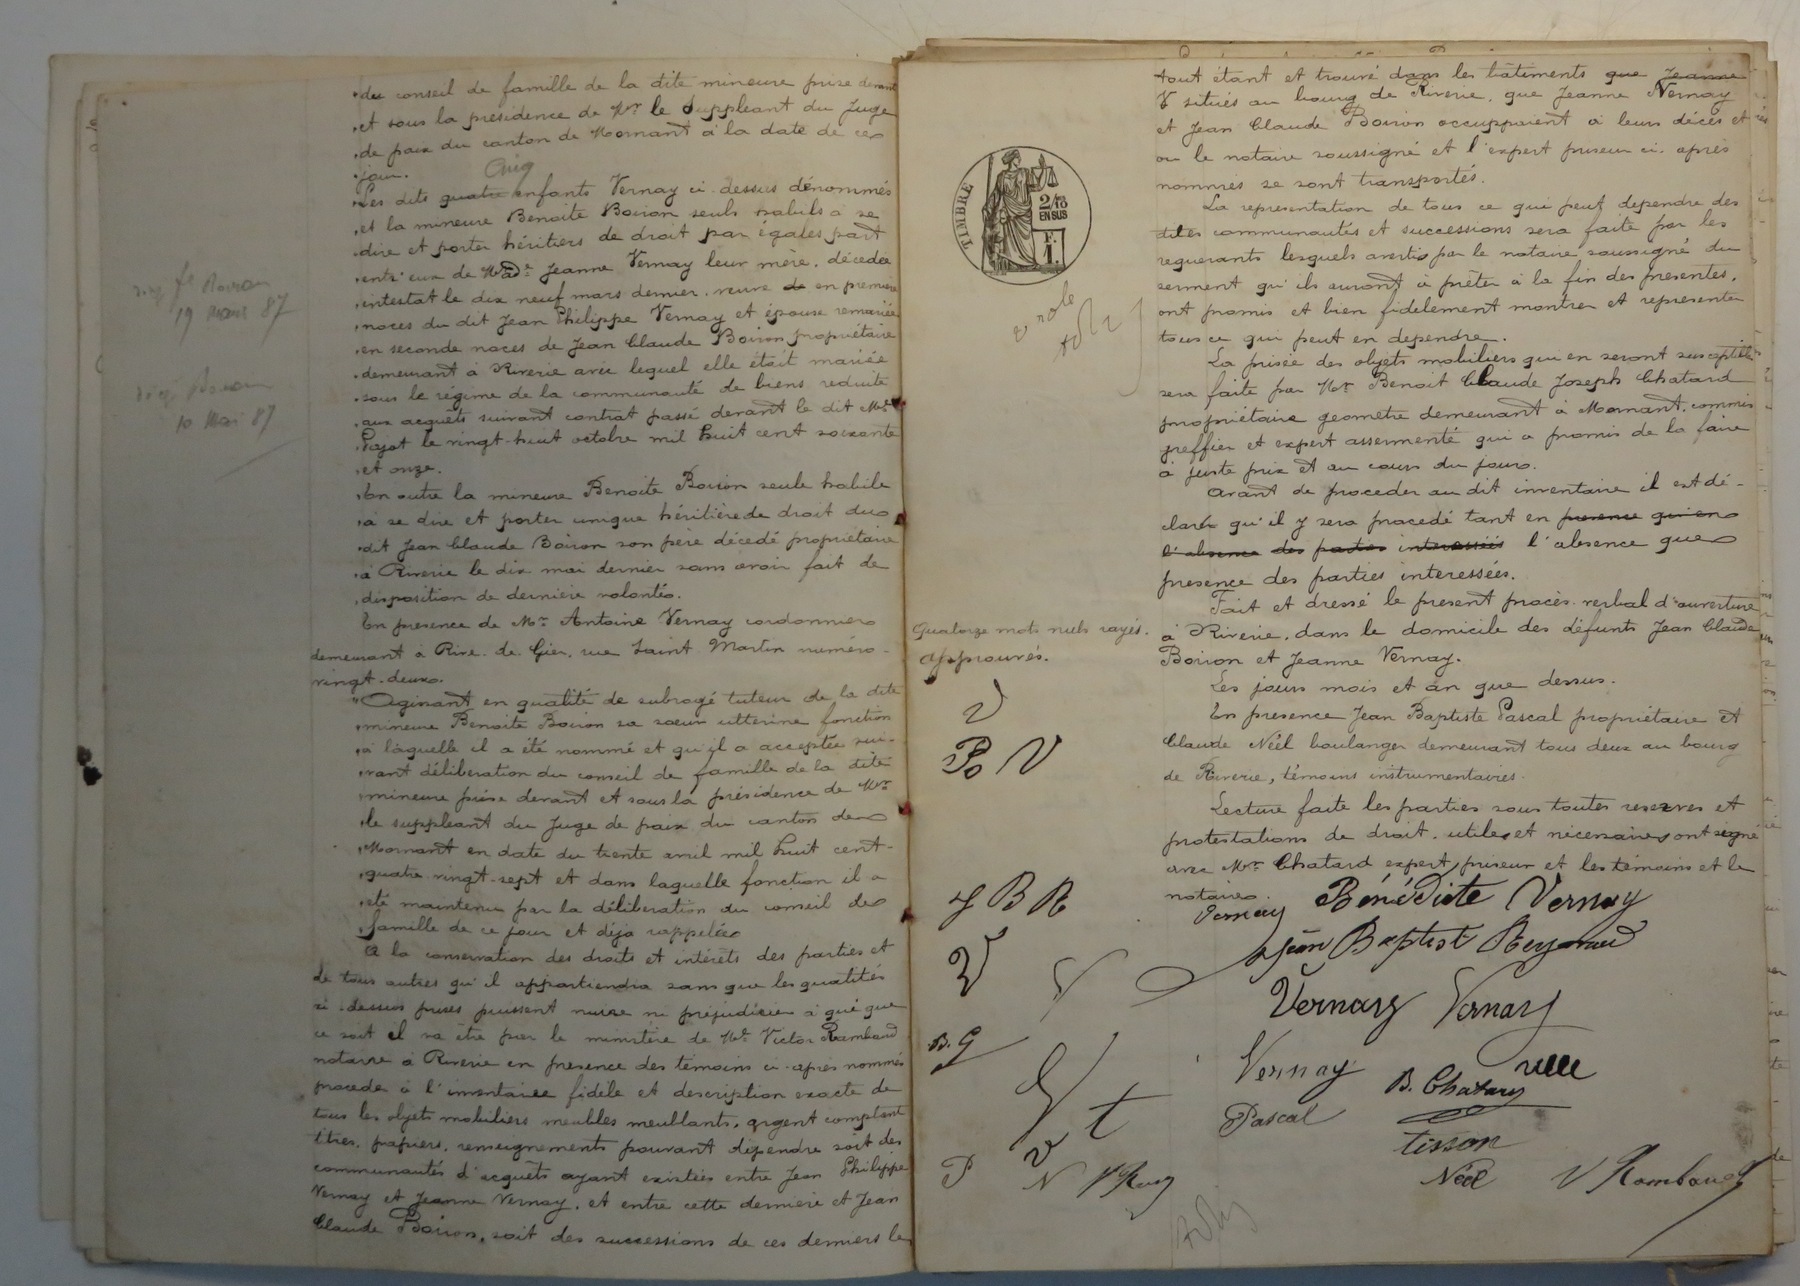 du conseil de famille de la dite mineure prise devant
et sous la présidence de Mr le Suppleant du Juge
de paix du canton de Mornant à la date de ce
jour.
Cinq
Les dits quatre enfants Vernay ci-dessus dénommés
et la mineure Benoite Boiron seuls habils a se
dire et porter héritiers de droit par égales part
entr'eux de Made Jeanne Vernay leur mère, décédée
intestat le dix neuf mars dernier, veuve de en première
noces du dit Jean Philippe Vernay et épouse remariée
en seconde noces de Jean Claude Boiron propriétaire
demeurant à Riverie avec lequel elle était mariée
sous le régime de la communauté de biens reduite
aux acquêts suivant contrat passé devant le dit Me
le vingt-huit octobre mil huit cent soixante
et onze.
En outre la mineure Benoite Boiron seule habile
à se dire et porter unique héritière de droit du
dit Jean Claude Boiron son père décédé propriétaire
à Riverie le dix mai dernier sans avoir fait de
disposition de dernière volontés.
En presence de Mr Antoine Vernay cordonnier
demeurant à Rive-de-Gier, rue Saint Martin numéro
vingt-deux.
Agissant en qualité de subrogé tuteur de la dite
mineure Benoite Boiron sa soeur utterine fonction
à laquelle il a été nommé et qu'il a acceptée sui-
vant délibération du conseil de famille de la dite
mineure prise devant et sous la présidence de Mr
le suppleant du Juge de paix du canton de
Mornant en date du trente avril mil huit cent-
quatre-vingt-sept et dans laquelle fonction il a
été maintenu par la délibération du conseil de
famille de ce jour et déja rappelée
A la conservation des droits et intérêts des parties et
de tous autres qu'il appartiendra sans que les qualités
ci-dessus prises puissent nuire ni préjudicier à qui que
ce soit il va être par le ministère de Me Victor Rambaud
notaire à Riverie en presence des témoins ci-après nommés
procédé à l'inventaire fidèle et description exacte de
tous les objets mobiliers meubles meublants, argent comptant
titres, papiers, renseignements pouvant dépendre soit des
communautés d'acquêts ayant existées entre Jean Philippe
Vernay et Jeanne Vernay, et entre cette dernière et Jean
Claude Boiron, soit des successions de ces derniers le
Boiron
19 mars 87
Boiron
10 Mai 87
tout étant et trouvé dans les bâtiments que Jeanne
V situés au bourg de Riverie, que Jeanne Vernay
et Jean Claude Boiron occuppaient à leurs décès et
ou le notaire soussigné et l'expert priseur ci-après
nommés se sont transportés.
La representation de tous ce qui peut dependre des
dites communautés et successions sera faite par les
requerants lesquels avertis par le notaire soussigné du
serment qu'ils auront à prêter à la fin des presentes,
ont promis et bien fidelement montrer et representer
tous ce qui peut en dependre.
La prisée des objets mobiliers qui en seront susceptibles
sera faite par Mr Benoit Claude Joseph Chatard
propriétaire geomètre demeurant à Mornant, commis
greffier et expert assermenté qui a promis de la faire
à juste prix et au cours du jour.
Avant de proceder au dit inventaire il est dé-
claré qu'il y sera procedé tant en presence qu'en
l'absence des parties interessées l'absence que
presence des parties interessées.
Fait et dressé le present procès-verbal d'ouverture
à Riverie, dans le domicile des défunts Jean Claude
Boiron et Jeanne Vernay.
Les jours mois et an que dessus.
En presence Jean Baptiste Pascal propriétaire et
Claude Néel boulanger demeurant tous deux au bourg
de Riverie, témoins instrumentaires.
Lecture faite les parties sous toutes reserves et
protestations de droit, utiles et nécessaires ont signé
avec Mr Chatard expert priseur et les témoins et le
notaire.
TIMBRE
2/10
EN SUS
F.
1.
Quatorze mots nuls rayés.
Approuvés.
V
Po V
J B R
V
B. G
t
V
P N
Vernay Bénédicte Vernay
Jean Baptist
Vernay Vernay
Vernay B. Chatard
Pascal
tisson
Néel V Rambaud